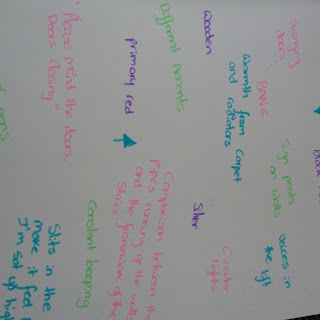 Swinging
doors
... BANG"
Warmth from Carpet
and radiators
Wooden
Different Accents
Primary red
"Please mind the doors.
Doors closing"
Black
Sign posts
on walls
Voices in
the lift
Circular
lights
Silver
Comparison between the
Pipes running up the walls
and the framework of the
Stairs
Constant beeping
Slits in the
make it feel
I'm sat up high